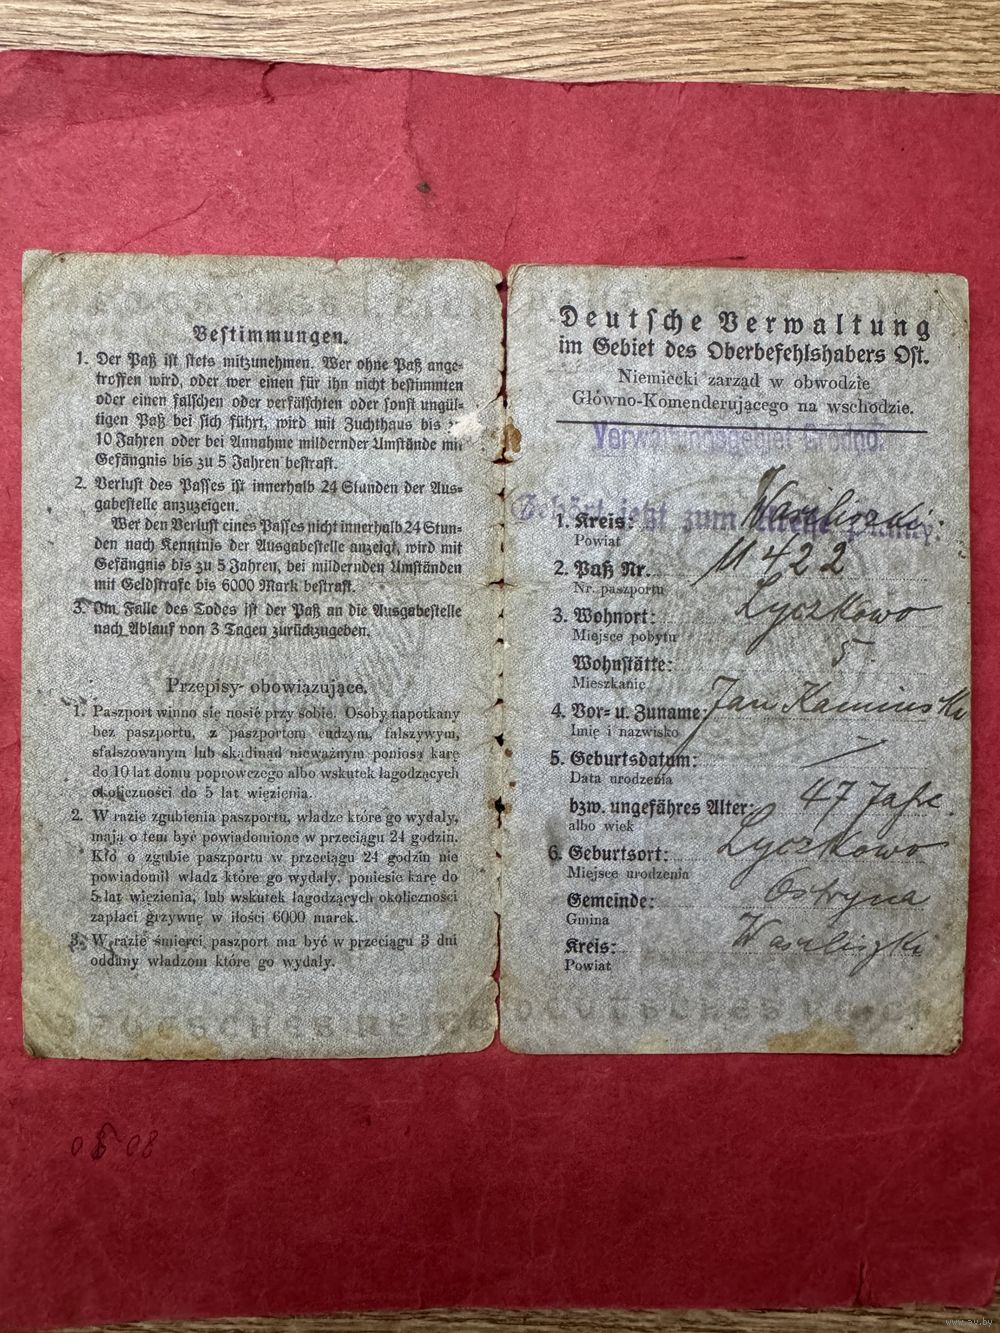 Bestimmungen.
1. Der Paß ist stets mitzunehmen. Wer ohne Paß ange-
troffen wird, oder wer einen für ihn nicht bestimmten
oder einen falschen oder verfälschten oder sonst ungül-
tigen Paß bei sich führt, wird mit Zuchthaus bis
10 Jahren oder bei Annahme mildernder Umstände mit
Gefängnis bis zu 5 Jahren bestraft.
2. Verlust des Passes ist innerhalb 24 Stunden der Aus-
gabestelle anzuzeigen.
Wer den Verlust eines Passes nicht innerhalb 24 Stun-
den nach Kenntnis der Ausgabestelle anzeigt, wird mit
Gefängnis bis zu 5 Jahren, bei mildernden Umständen
mit Geldstrafe bis 6000 Mark bestraft.
3. Im Falle des Todes ist der Paß an die Ausgabestelle
nach Ablauf von 3 Tagen zurückzugeben.
Przepisy obowiązujące.
1. Paszport winno się nosić przy sobie. Osoby napotkany
bez paszportu, z paszportem cudzym, falszywym,
sfalszowanym lub skądinąd nieważnym poniosą karę
do 10 lat domu poprowczego albo wskutek łagodzących
okoliczności do 5 lat więzienia.
2. W razie zgubienia paszportu, władze które go wydały,
mają o tem być powiadomione w przeciągu 24 godzin.
Kto o zgubie paszportu w przeciągu 24 godzin nie
powiadomił władz które go wydały, poniesie karę do
5 lat więzienia, lub wskutek łagodzących okoliczności
zapłaci grzywnę w ilości 6000 marek.
3. W razie śmierci paszport ma być w przeciągu 3 dni
oddany władzom które go wydały.
DEUTSCHES REICH
Deutsche Verwaltung
im Gebiet des Oberbefehlshabers Ost.
Niemiecki zarząd w obwodzie
Główno-Komenderującego na wschodzie.
Verwaltungsgebiet Grodno.
Gehört jetzt zum
1. Kreis: Wasiliszki
Powiat
2. Paß Nr. 11422
Nr. paszportu
3. Wohnort: Lyczkowo
Miejsce pobytu
Wohnstätte: 5
Mieszkanie
4. Vor- u. Zuname: Jan Kaminski
Imię i nazwisko
5. Geburtsdatum: —
Data urodzenia
bzw. ungefähres Alter: 47 Jahre
albo wiek
6. Geburtsort: Lyczkowo
Miejsce urodzenia
Gemeinde: Ostryna
Gmina
Kreis: Wasiliszki
Powiat
DEUTSCHES REICH
www.ay.by